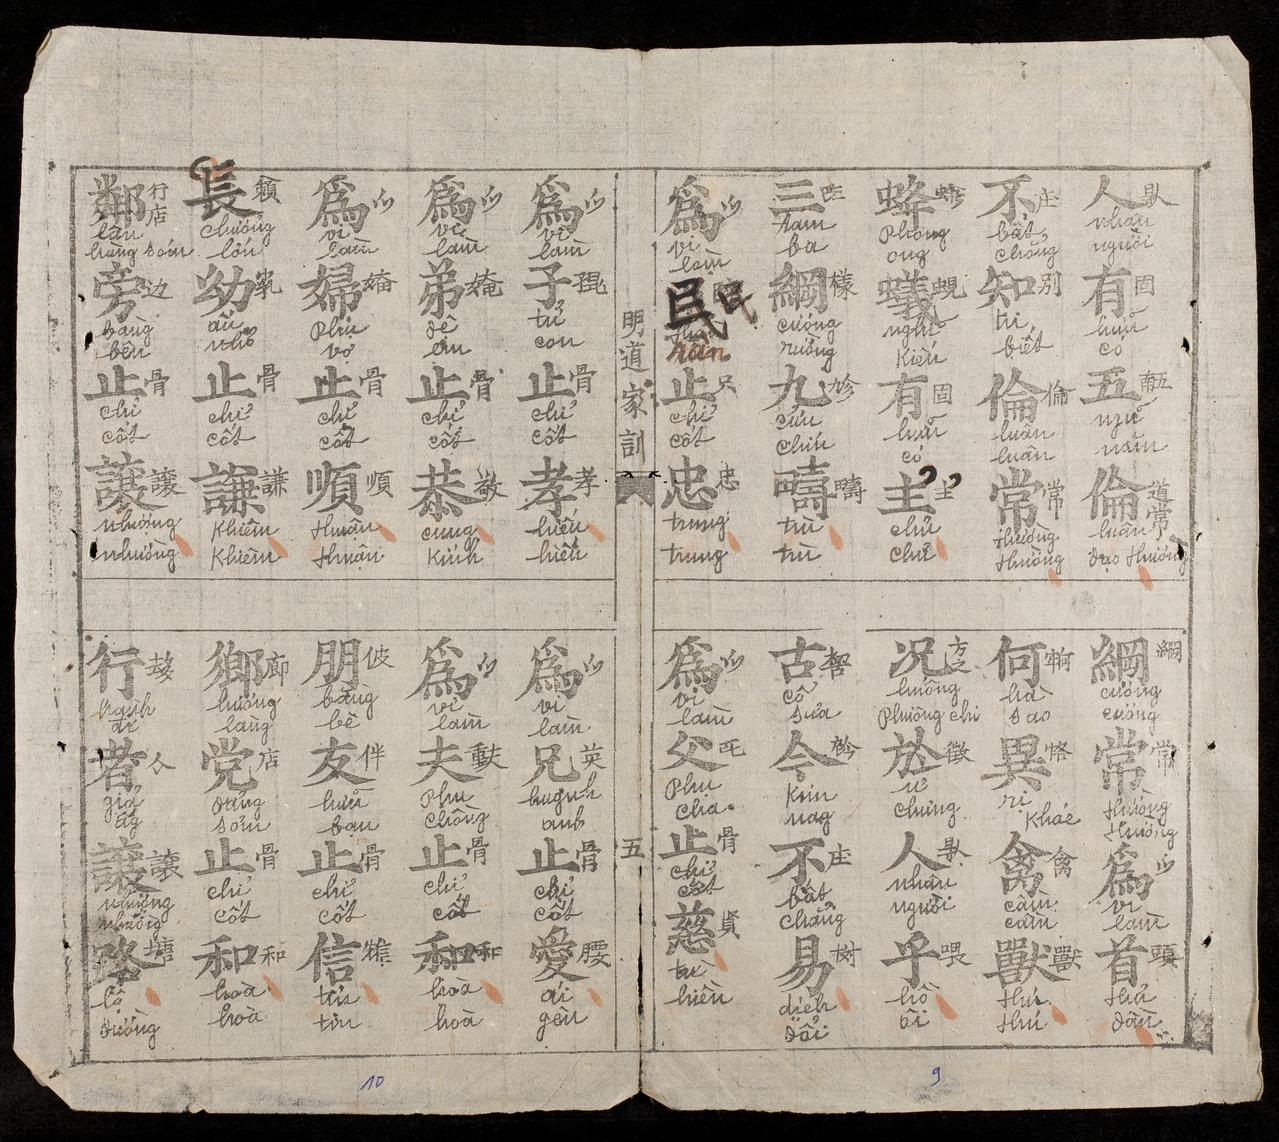 人 nhân người 有 固 hữu có 五 ngũ năm 倫 道常 luân đạo thường
綱 綱 cương cương 常 常 thường thường 爲 vi làm 首 頭 thủ đầu
不 庄 bất chẳng 知 别 tri biết 倫 倫 luân luân 常 常 thường thường
何 hà sao 異 dị khác 禽 禽 cầm cầm 獸 獸 thú thú
蜂 phong ong 蟻 蜆 nghĩ kiến 有 固 hữu có 主 主 chủ chủ
况 方之 huống phương chi 於 徵 ư chưng 人 nhân người 乎 喂 hồ ôi
三 tam ba 綱 樣 cương rường 九 cửu chín 疇 疇 trù trù
古 cổ xưa 今 kim nay 不 庄 bất chẳng 易 dịch đổi
爲 vi làm 臣 民 thần 止 chỉ cốt 忠 忠 trung trung
爲 vi làm 父 phụ cha 止 骨 chỉ cốt 慈 賢 từ hiền
明道家訓
五
爲 vi làm 子 tử con 止 骨 chỉ cốt 孝 孝 hiếu hiếu
爲 vi làm 兄 英 huynh anh 止 骨 chỉ cốt 愛 腰 ái yêu
爲 vi làm 弟 đệ em 止 骨 chỉ cốt 恭 敬 cung kính
爲 vi làm 夫 phu chồng 止 骨 chỉ cốt 和 和 hoà hoà
爲 vi làm 婦 phụ vợ 止 骨 chỉ cốt 順 順 thuận thuận
朋 bằng bè 友 伴 hữu bạn 止 骨 chỉ cốt 信 tín tin
長 trưởng lớn 幼 ấu nhỏ 止 骨 chỉ cốt 謙 謙 khiêm khiêm
鄉 廊 hương làng 党 店 đảng xóm 止 骨 chỉ cốt 和 和 hoà hoà
鄰 行店 lân hàng xóm 旁 边 bàng bên 止 骨 chỉ cốt 讓 讓 nhượng nhường
行 hành đi 者 giả ấy 讓 讓 nhượng nhường 路 塘 lộ đường
10
9